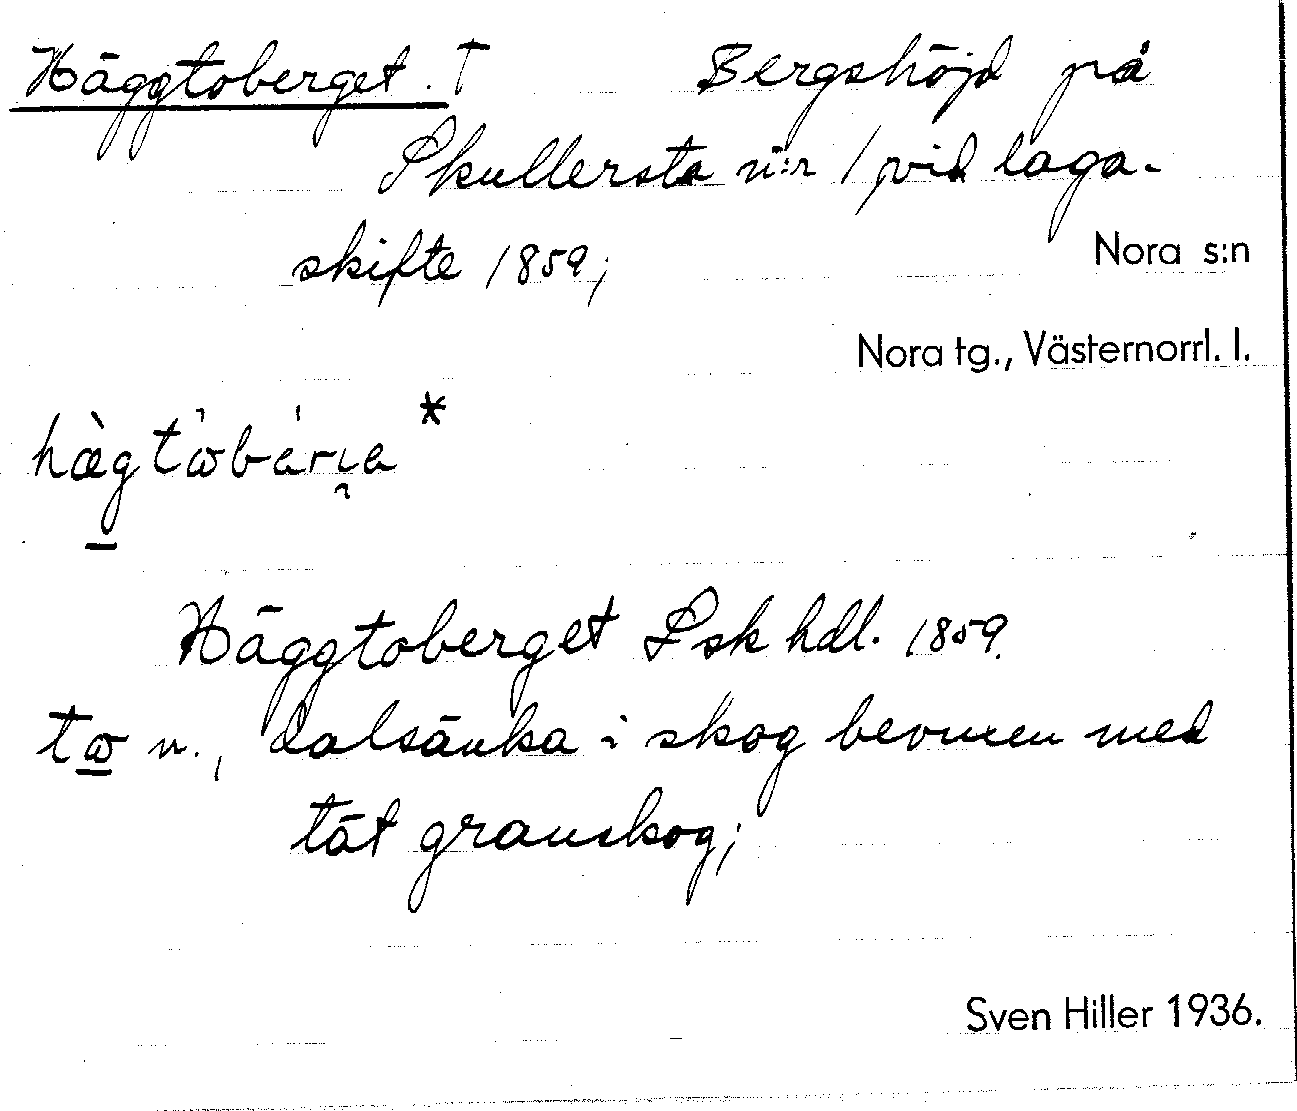 Häggtoberget. † Bergshöjd på
Skullersta n:r 1 vid laga-
skifte 1859;
Nora s:n
Nora tg., Västernorrl. l.
Häggtoberget Lsk hdl. 1859.
n., dalsänka i skog bevuxen med
tät granskog;
Sven Hiller 1936.